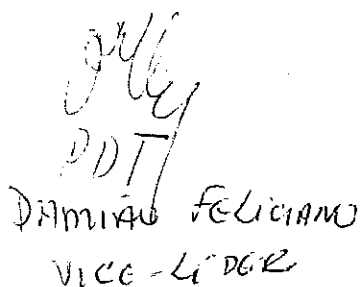 PDT
DAMIÃO FELICIANO
VICE-LÍDER